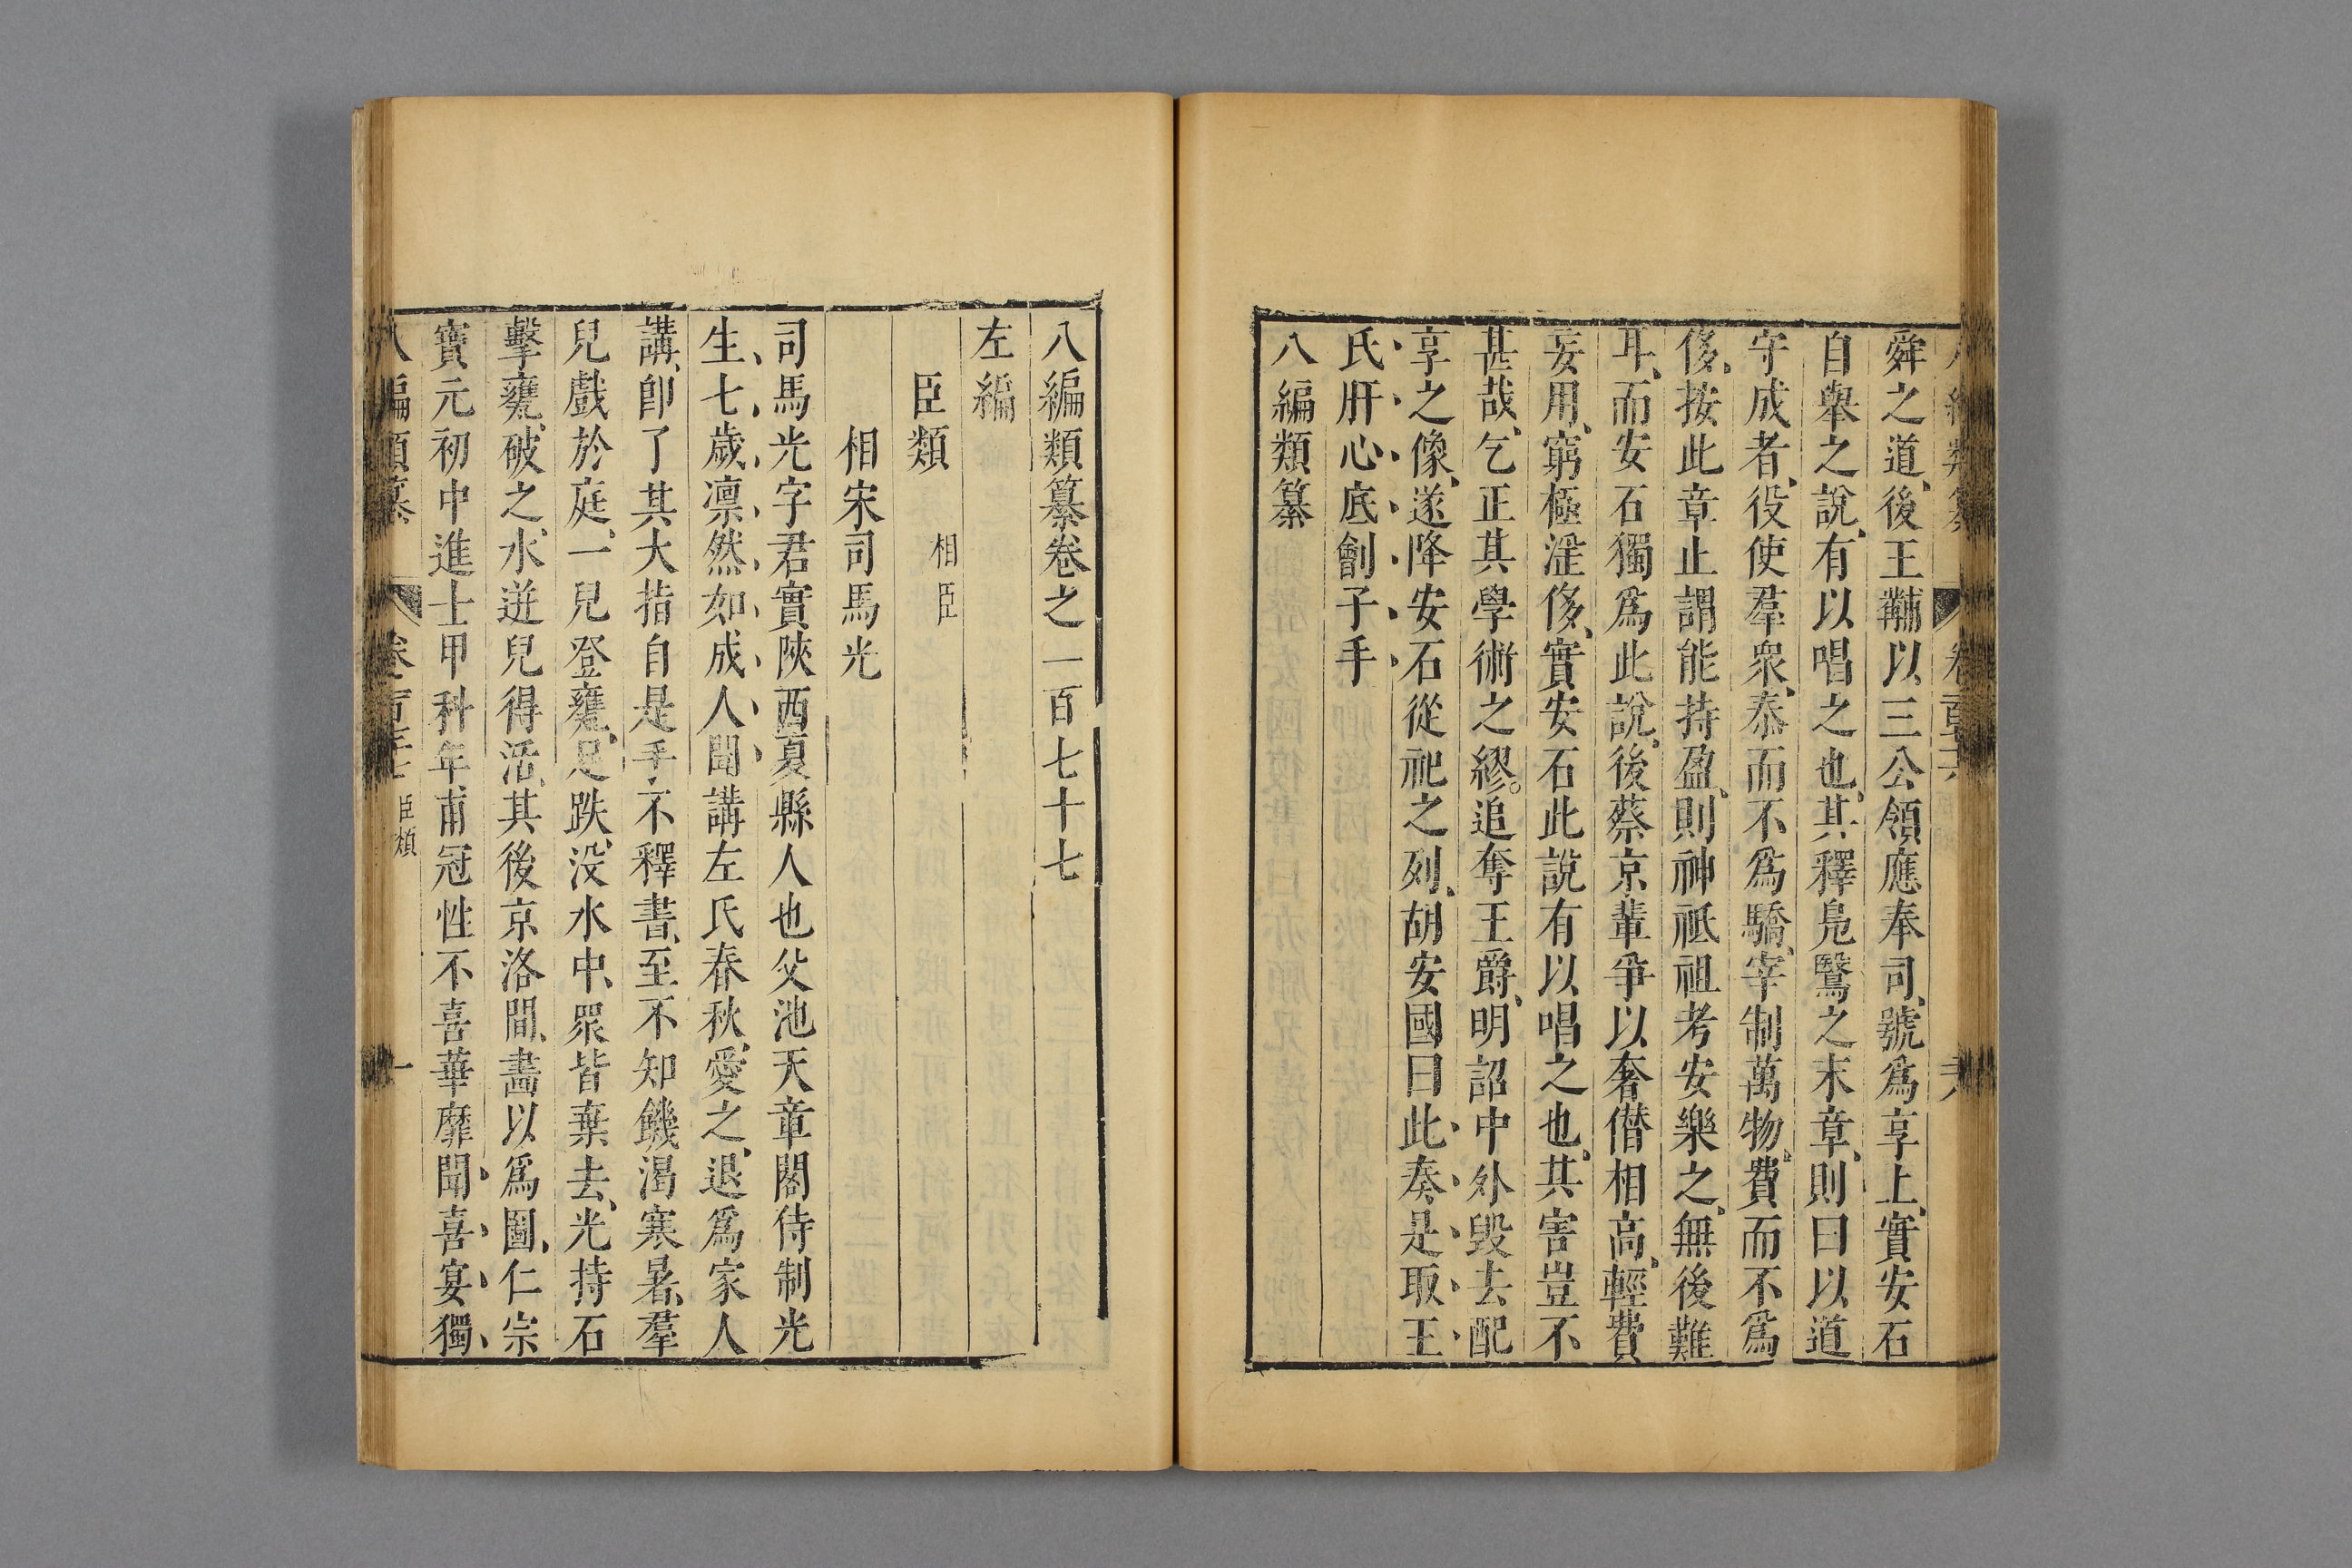 舜之道、後王黼以三公領應奉司、號爲享上、實安石
自舉之說、有以唱之也、其釋鳧鷖之末章、則曰以道
守成者、役使羣衆、泰而不爲驕、宰制萬物、費而不爲
侈、按此章止謂能持盈、則神祗祖考安樂之、無後難
耳、而安石獨爲此說、後蔡京輩爭以奢僭相高、輕費
妄用、窮極淫侈、實安石此說有以唱之也、其害豈不
甚哉、乞正其學術之繆。追奪王爵、明詔中外毀去配
享之像、遂降安石從祀之列、胡安國曰此奏是取王
氏肝心底劊子手
八編類纂
八編類纂卷之一百七十七
左編
臣類 相臣
相宋司馬光
司馬光字君實陝西夏縣人也父池天章閣侍制光
生、七歲凛然如成人聞講左氏春秋、愛之、退爲家人
講、卽了其大指自是手不釋書、至不知饑渴寒暑、羣
兒戲於庭、一兒登甕、足跌、沒水中、眾皆棄去、光持石
擊甕、破之、水迸兒得活、其後京洛間、畫以爲圖、仁宗
寶元初中進士甲科年甫冠性不喜華靡聞喜宴獨
臣類
一